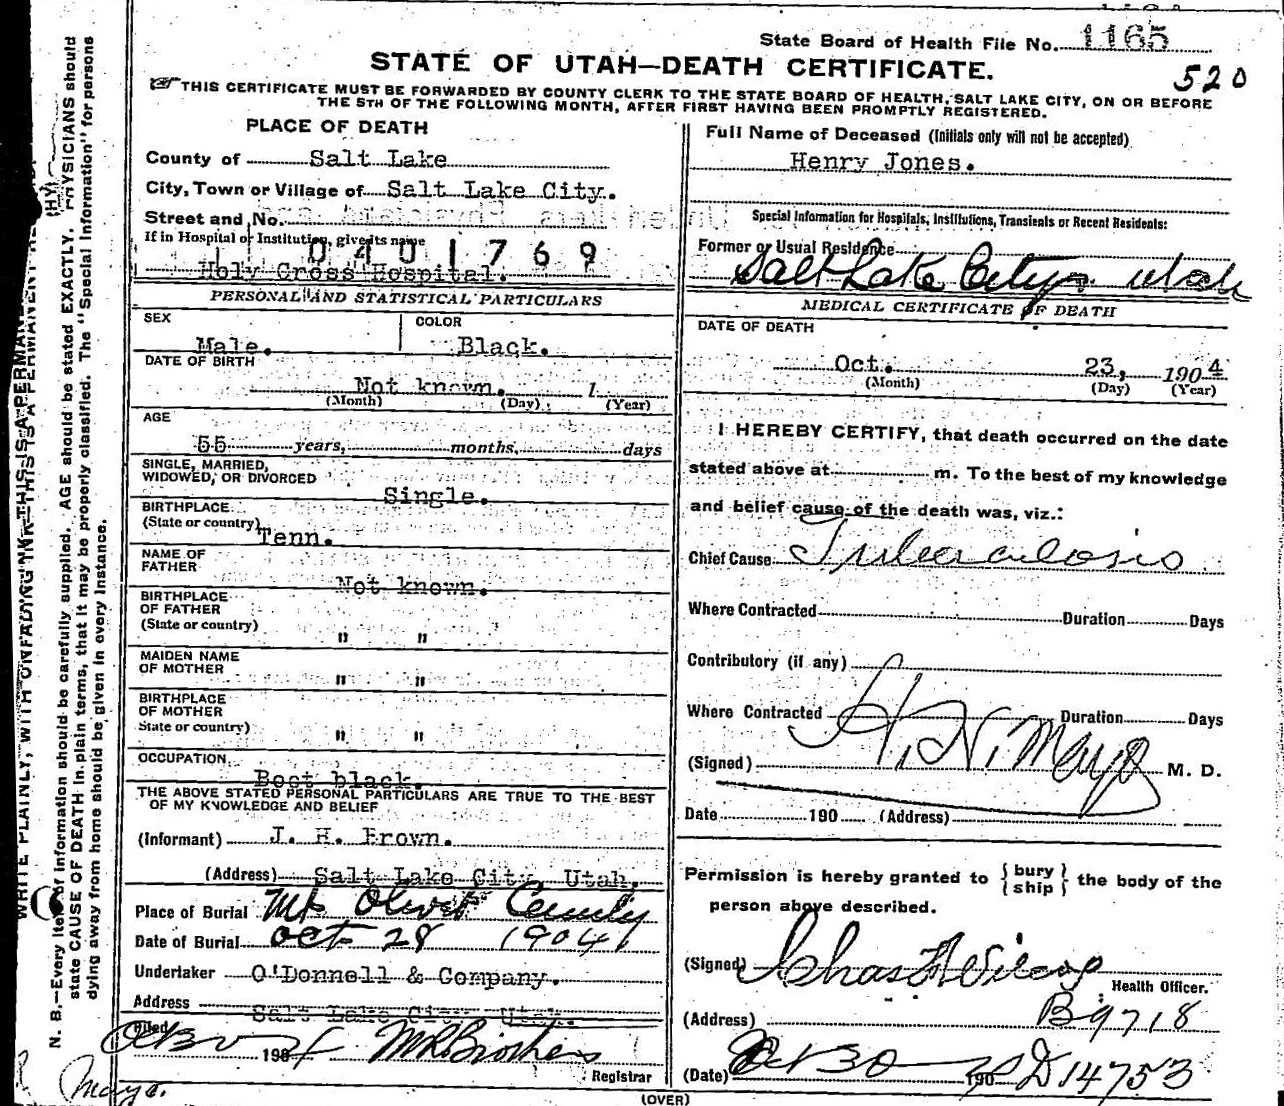 State Board of Health File No. 1165
520
STATE OF UTAH—DEATH CERTIFICATE.
THIS CERTIFICATE MUST BE FORWARDED BY COUNTY CLERK TO THE STATE BOARD OF HEALTH, SALT LAKE CITY, ON OR BEFORE
THE 5TH OF THE FOLLOWING MONTH, AFTER FIRST HAVING BEEN PROMPTLY REGISTERED.
PLACE OF DEATH
County of Salt Lake
City, Town or Village of Salt Lake City.
Street and No.
If in Hospital or Institution, give its name
0401769
Holy Cross Hospital.
PERSONAL AND STATISTICAL PARTICULARS
SEX
Male.
COLOR
Black.
DATE OF BIRTH
Not known. 1
(Month) (Day) (Year)
AGE
55 years, months, days
SINGLE, MARRIED,
WIDOWED, OR DIVORCED
Single.
BIRTHPLACE
(State or country) Tenn.
NAME OF
FATHER
Not known.
BIRTHPLACE
OF FATHER
(State or country)
" "
MAIDEN NAME
OF MOTHER
" "
BIRTHPLACE
OF MOTHER
State or country)
" "
OCCUPATION
Boot black.
THE ABOVE STATED PERSONAL PARTICULARS ARE TRUE TO THE BEST
OF MY KNOWLEDGE AND BELIEF
(Informant) J. H. Brown.
(Address) Salt Lake City, Utah.
Place of Burial Mt Olivet
Date of Burial Oct 28 1904
Undertaker O'Donnell & Company.
Address Salt Lake City Utah.
Filed
190
Registrar
Full Name of Deceased (Initials only will not be accepted)
Henry Jones.
Special Information for Hospitals, Institutions, Transients or Recent Residents:
Former or Usual Residence
Salt Lake City Utah
MEDICAL CERTIFICATE OF DEATH
DATE OF DEATH
Oct. 23, 1904
(Month) (Day) (Year)
I HEREBY CERTIFY, that death occurred on the date
stated above at m. To the best of my knowledge
and belief cause of the death was, viz.:
Chief Cause Tuberculosis
Where Contracted Duration Days
Contributory (if any)
Where Contracted Duration Days
(Signed) H. N. Mayo M. D.
Date 190 (Address)
Permission is hereby granted to { bury ship } the body of the
person above described.
(Signed)
Health Officer.
(Address) B9718
(Date) Oct 30 190 D14753
(OVER)
WRITE PLAINLY, WITH UNFADING INK—THIS IS A PERMANENT
N. B.—Every item of information should be carefully supplied. AGE should be stated EXACTLY. PHYSICIANS should
state CAUSE OF DEATH in plain terms, that it may be properly classified. The "Special Information" for persons
dying away from home should be given in every instance.
Mayo.